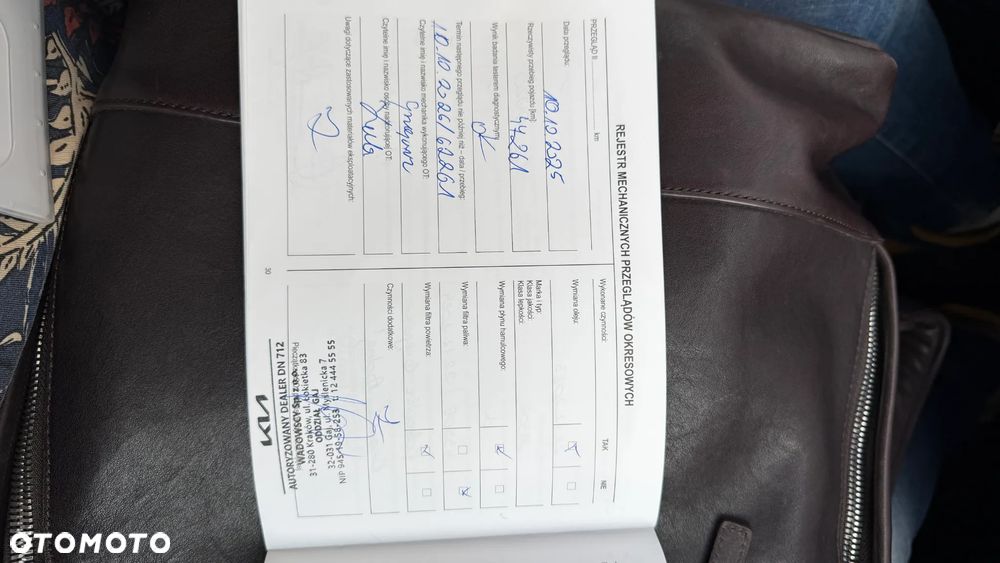 REJESTR MECHANICZNYCH PRZEGLĄDÓW OKRESOWYCH
PRZEGLĄD tj. km
Data przeglądu:
10.10.2025
Rzeczywisty przebieg pojazdu [km]:
47261
Wynik badania testerem diagnostycznym:
OK
Termin następnego przeglądu nie później niż – data i przebieg:
10.10.2026/62261
Czytelne imię i nazwisko mechanika wykonującego OT:
Czytelne imię i nazwisko osoby nadzorującej OT:
Uwagi dotyczące zastosowanych materiałów eksploatacyjnych:
Wykonane czynności: TAK NIE
Wymiana oleju:
Marka i typ:
Klasa jakości:
Klasa lepkości:
Wymiana płynu hamulcowego:
Wymiana filtra paliwa:
Wymiana filtra powietrza:
Czynności dodatkowe:
KIA
AUTORYZOWANY DEALER DN 712
WADOWSCY Sp. z o.o.
31-280 Kraków, ul. Łokietka 83
ODDZIAŁ GAJ
32-031 Gaj, ul. Myślenicka 7
t: 12 444 55 55
30
OTOMOTO